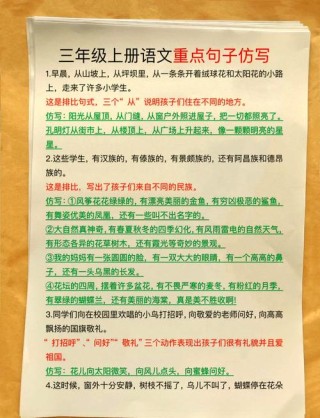 三年级上册语文重点句子仿写
1.早晨，从山坡上，从坪坝里，从一条条开着绒球花和太阳花的小路
上，走来了许多小学生。
这是排比句式，三个“从”说明孩子们住在不同的地方。
仿写：阳光从屋顶，从门缝，从窗户外照进屋子，把一切都照亮了。
孔明灯从街市上，从楼顶上，从广场上升起来，像一颗颗明亮的星
星。
2.这些学生，有汉族的，有傣族的，有景颇族的，还有阿昌族和德昂
族的。
这是排比，写出了孩子们来自不同的民族。
仿写：①风筝花花绿绿的，有漂亮美丽的金鱼，有穷凶极恶的鲨鱼，
有舞姿优美的凤凰，还有一些叫不出名字的。
②大自然真神奇，有春夏秋冬的四季幻化，有风雨雷电的自然天气，
有形态各异的花草树木，还有霞光等奇妙的景观。
③我的妈妈有一张圆圆的脸，有一双大大的眼睛，有一个高高的鼻
子，还有一头乌黑的长发。
④花坛的四周，摆着许多盆花，有不畏严寒的麦冬，有粉红的月季，
有翠绿的蝴蝶兰，还有美丽的海棠，真是美不胜收啊！
3.同学们向在校园里欢唱的小鸟打招呼，向敬爱的老师问好，向高高
飘扬的国旗敬礼。
“打招呼”、“问好”“敬礼”三个动作表现出孩子们很有礼貌并且爱
祖国。
仿写：花儿向太阳微笑，向风儿点头，向蜜蜂问好。
4.这时候，窗外十分安静，树枝不摇了，鸟儿不叫了，蝴蝶停在花朵